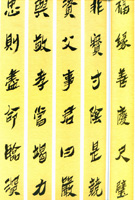 福緣善慶尺璧
非寶寸陰是競
資父事君曰嚴
與敬孝當竭力
忠則盡命臨深